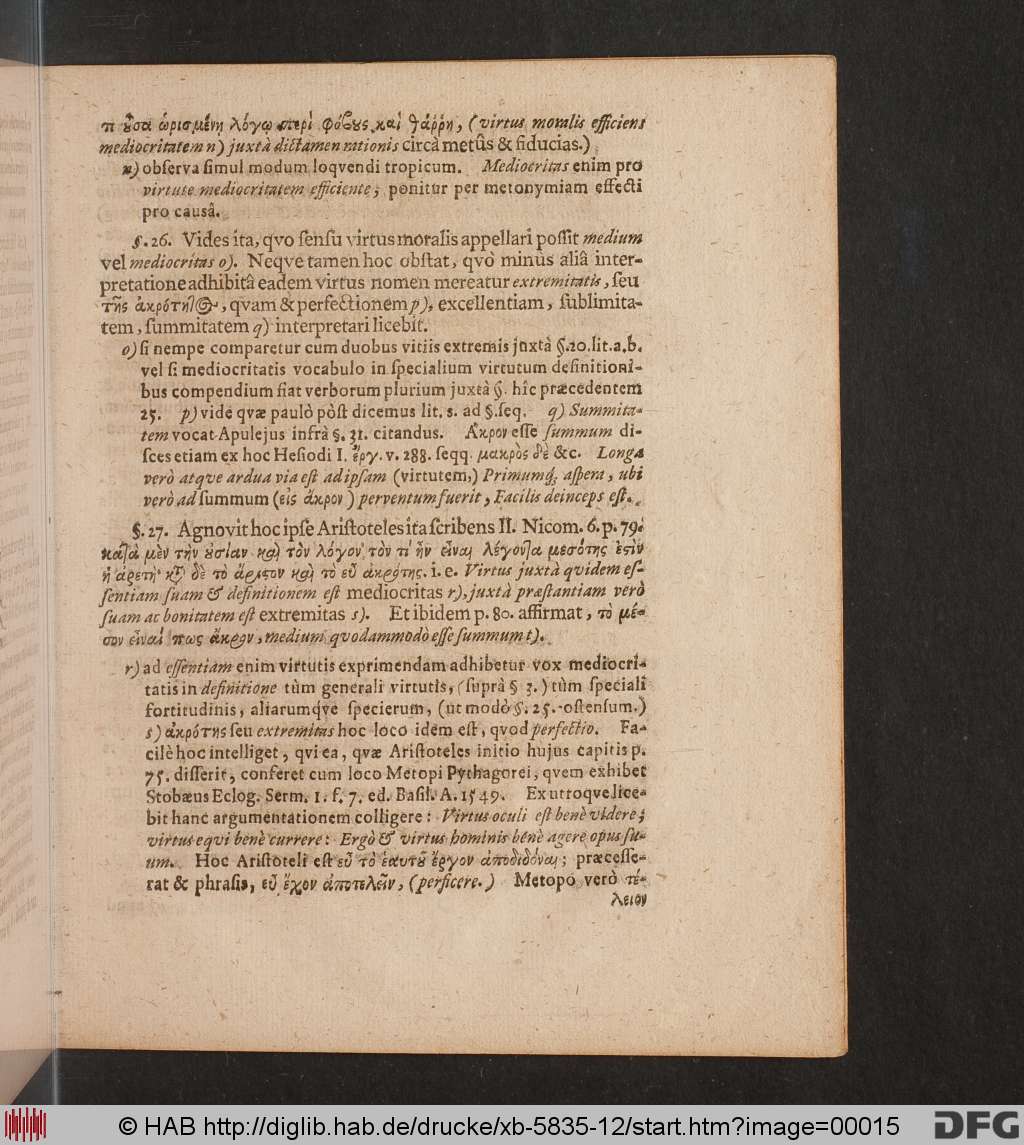 π ȣ͂σα ὡρισμένη λόγῳ περὶ φόβȣς καὶ θάῤῥη, (virtus moralis efficiens
mediocritatem n) juxtà dictamen rationis circâ metûs & fiducias.)
n) observa simul modum loqvendi tropicum. Mediocritas enim pro
virtute mediocritatem efficiente; ponitur per metonymiam effecti
pro causâ.
§. 26. Vides ita, qvo sensu virtus moralis appellari possit medium
vel mediocritas o). Neqve tamen hoc obstat, qvò minùs aliâ inter-
pretatione adhibitâ eadem virtus nomen mereatur extremitatis, seu
τῆς ἀκρότητος, qvam & perfectionem p), excellentiam, sublimita-
tem, summitatem q) interpretari licebit.
o) si nempe comparetur cum duobus vitiis extremis juxtà §. 20. lit. a. b.
vel si mediocritatis vocabulo in specialium virtutum definitioni-
bus compendium fiat verborum plurium juxtà §. hîc præcedentem
25. p) vide qvæ paulò pòst dicemus lit. s. ad §. seq. q) Summita-
tem vocat Apulejus infrà §. 31. citandus. Ἄκρον esse summum di-
sces etiam ex hoc Hesiodi I. ἔργ. v. 288. seqq. μακρὸς δὲ &c. Longa
verò atqve ardua via est ad ipsam (virtutem,) Primumq; aspera, ubi
verò ad summum (εἰς ἄκρον) perventum fuerit, Facilis deinceps est.
§. 27. Agnovit hoc ipse Aristoteles ita scribens II. Nicom. 6. p. 79.
κατὰ μὲν τὴν ȣ̓σίαν καὶ τὸν λόγον τὸν τί ἦν εἶναι λέγοντα μεσότης ἐςὶν
ἡ ἀρετή· κτ̀ δὲ τὸ ἄριςον καὶ τὸ εὖ ἀκρότης. i. e. Virtus juxtà qvidem es-
sentiam suam & definitionem est mediocritas r), juxtà præstantiam verò
suam ac bonitatem est extremitas s). Et ibidem p. 80. affirmat, τὸ μέ-
σον εἶναί πως ἄκρον, medium qvodammodò esse summum t).
r) ad essentiam enim virtutis exprimendam adhibetur vox mediocri-
tatis in definitione tùm generali virtutis, (suprà § 3.) tùm speciali
fortitudinis, aliarumqve specierum, (ut modò §. 25. ostensum.)
s) ἀκρότης seu extremitas hoc loco idem est, qvod perfectio. Fa-
cilè hoc intelliget, qvi ea, qvæ Aristoteles initio hujus capitis p.
75. disserit, conferet cum loco Metopi Pythagorei, qvem exhibet
Stobæus Eclog. Serm. 1. f. 7. ed. Basil. A. 1549. Ex utroqve lice-
bit hanc argumentationem colligere: Virtus oculi est benè videre;
virtus eqvi benè currere: Ergò & virtus hominis benè agere opus su-
um. Hoc Aristoteli est εὖ τὸ ἑαυτȣ͂ ἔργον ἀποδιδόναι; præcesse-
rat & phrasis, εὖ ἔχον ἀποτελεῖν, (perficere.) Metopo verò τέ-
λειον
© HAB http://diglib.hab.de/drucke/xb-5835-12/start.htm?image=00015
DFG